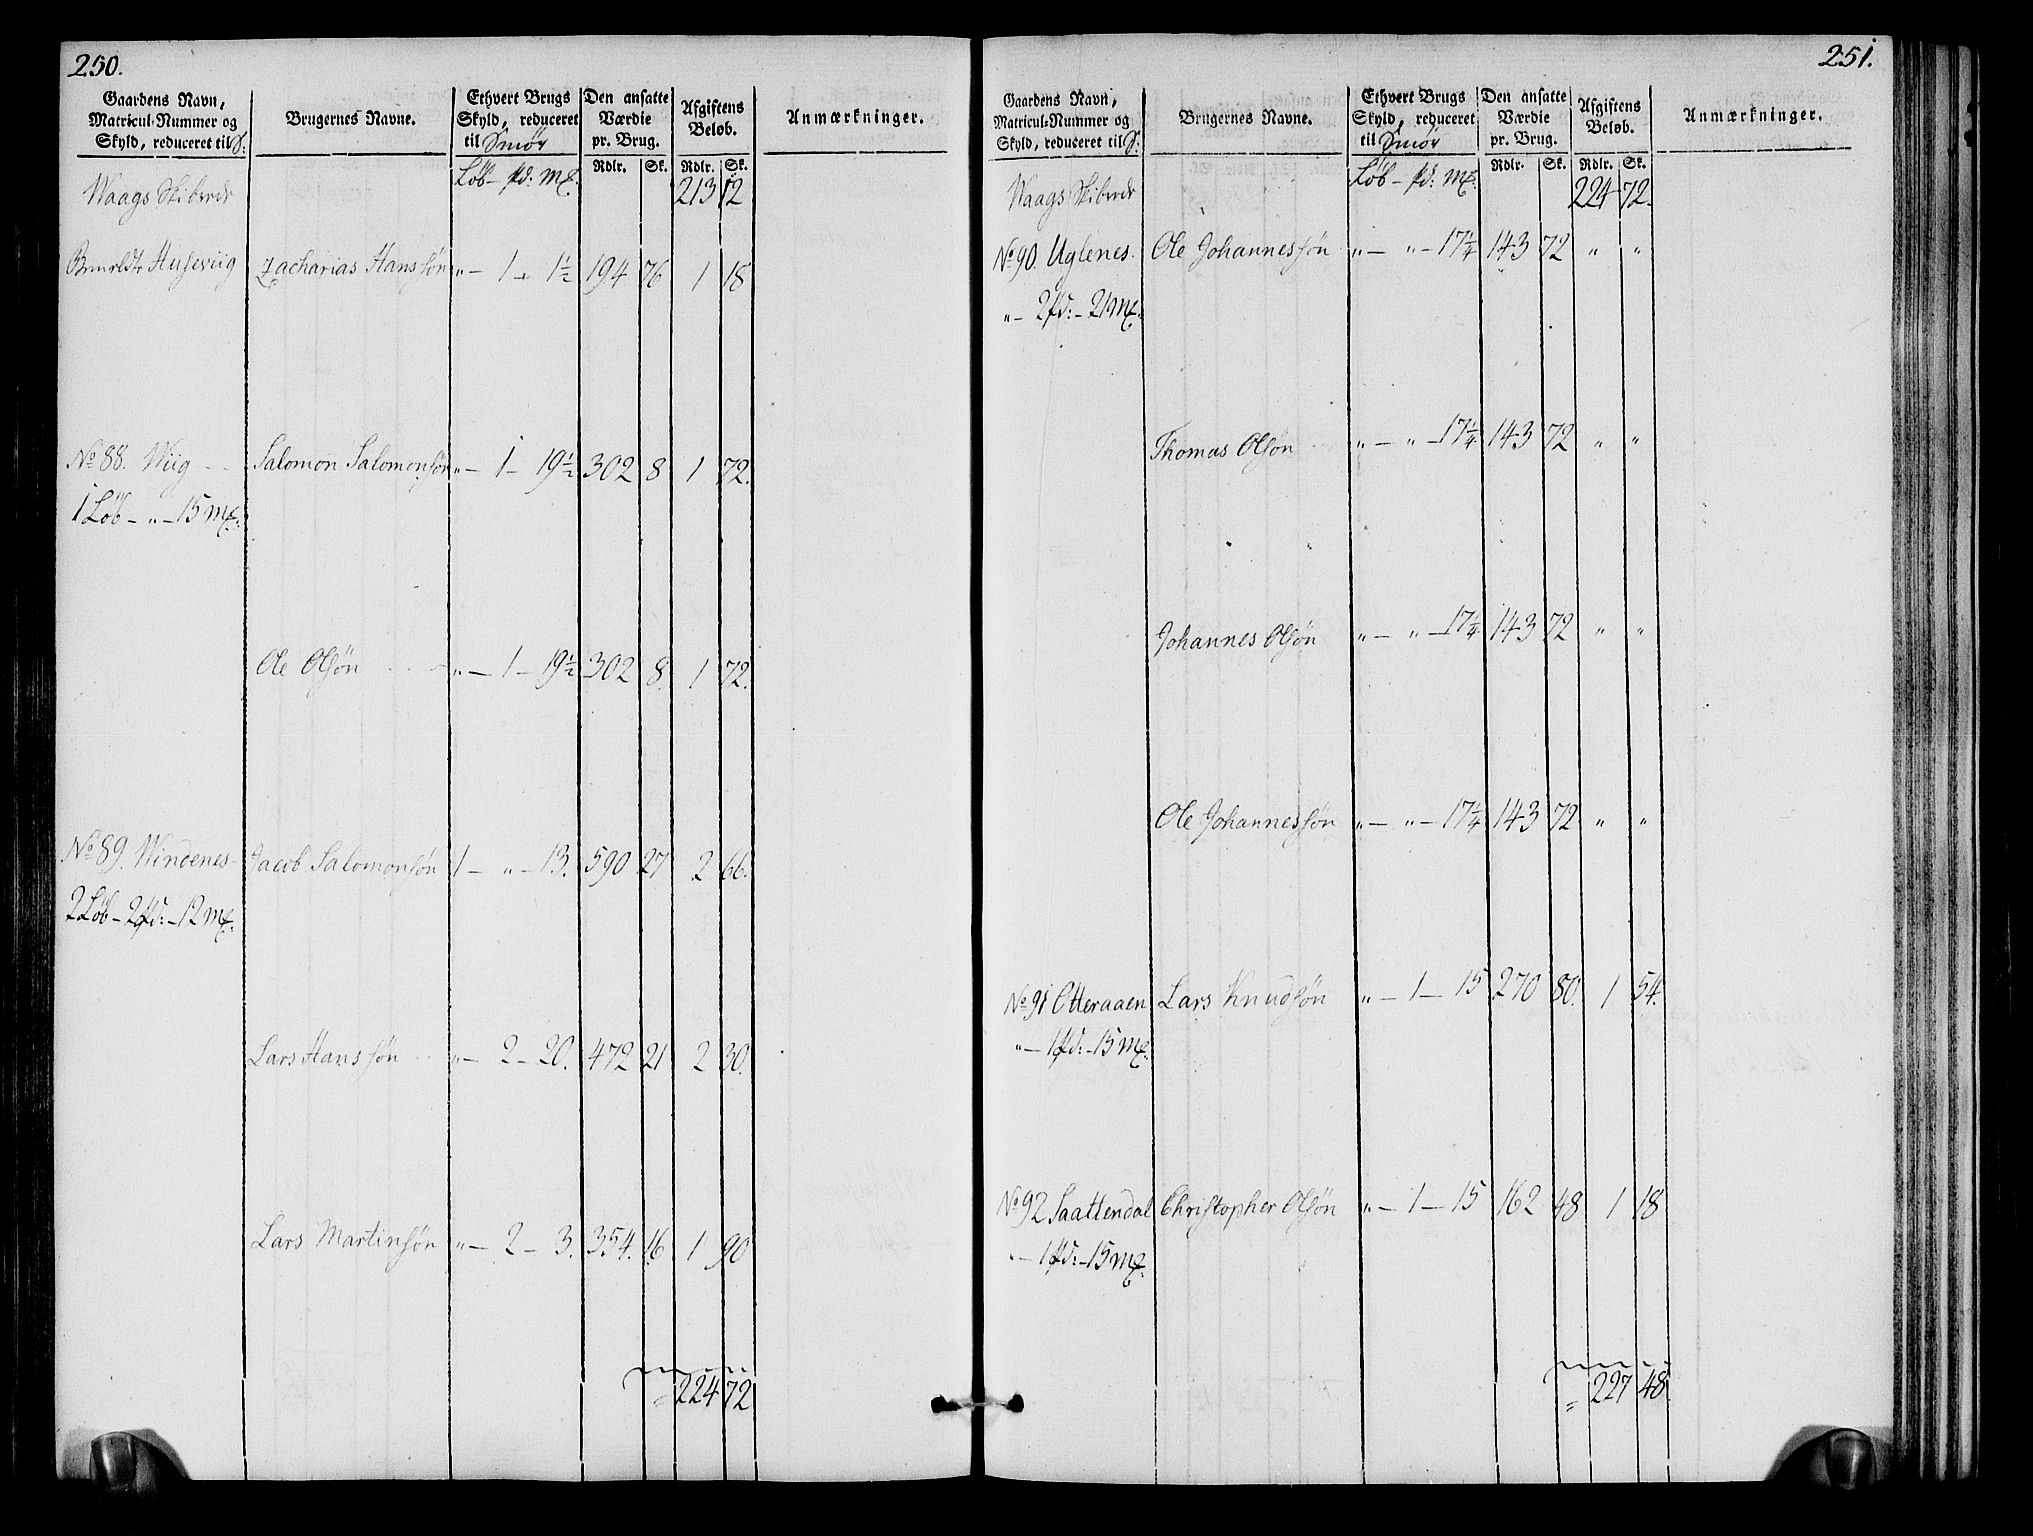 250.
Gaardens Navn,
Matricul-Nummer og
Skyld, reduceret til S.
Brugernes Navne.
Ethvert Brugs
Skyld, reduceret
til Smør
Den ansatte
Værdie
pr. Brug.
Afgiftens
Beløb.
Anmærkninger.
Løb – pd: mk:
Rdlr. Sk. Rdlr. Sk.
Waags Skibrede 213 12
Huseviig Zacharias Hanssøn „ – 1 – 1½ 194 76 1 18
No 88. Wiig - - Salomon Salomonsøn „ – 1 – 19½ 302 8 1 72.
1 Løb – „ – 15 mk:
Ole Olsøn „ – 1 – 19½ 302 8. 1 72.
No 89. Windenes - Jacob Salomonsøn 1 – „ – 13. 590 27 2 66.
2 Løb – 2 pd: – 12 mk:
Lars Hanssøn „ – 2 – 20. 472 21 2 30.
Lars Martinsøn „ – 2 – 3. 354. 16 1 90
= 224 72
251.
Gaardens Navn,
Matricul-Nummer og
Skyld, reduceret til S.
Brugernes Navne.
Ethvert Brugs
Skyld, reduceret
til Smør
Den ansatte
Værdie
pr. Brug.
Afgiftens
Beløb.
Anmærkninger.
Løb – pd: mk:
Rdlr. Sk. Rdlr. Sk.
Waags Skibrede 224 72.
No 90. Uglenes. Ole Johannessøn „ – „ – 17¼ 143 72 „ „
„ – 2 pd: – 21 mk:
Thomas Olsøn „ – „ – 17¼ 143 72 „ „
Johannes Olsøn „ – „ – 17¼ 143 72 „ „
Ole Johannessøn „ – „ – 17¼ 143 72 „ „
No 91 Otteraaen Lars Knudsøn „ – 1 – 15 270 80. 1 54.
„ – 1 pd: – 15 mk:
No 92 Saattendal Christopher Olsøn „ – 1 – 15 162 48 1 18
„ – 1 pd: – 15 mk:
= 227 48.